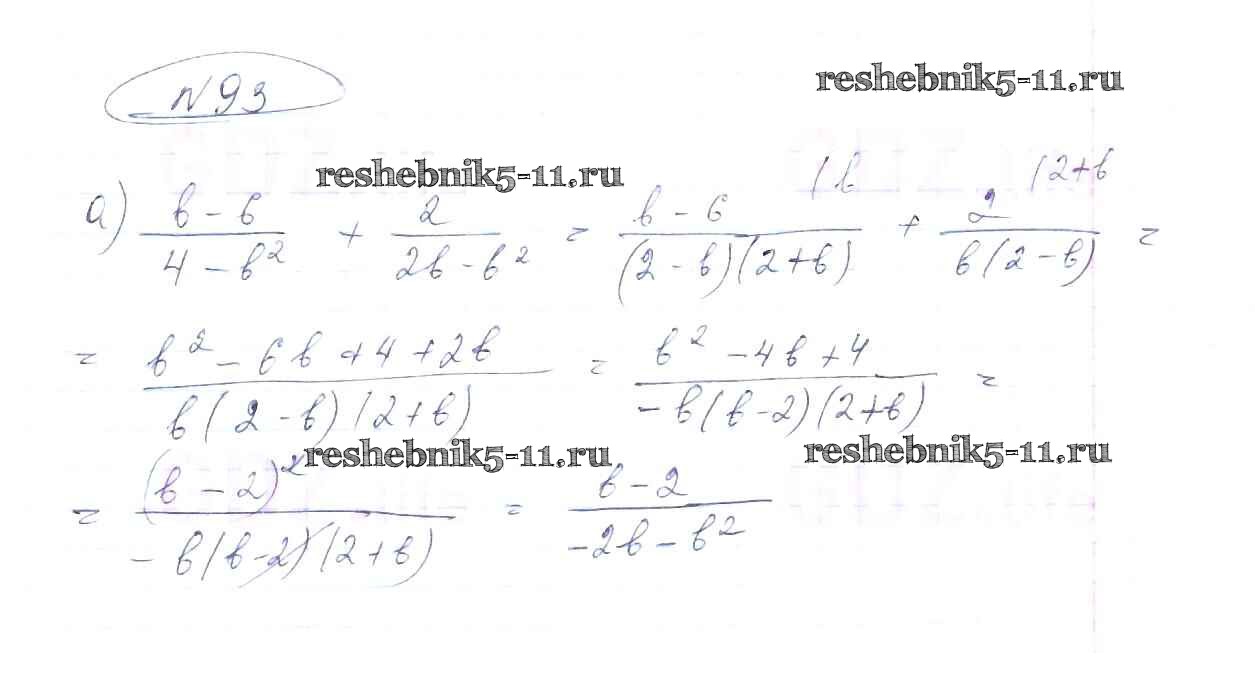 №93
reshebnik5-11.ru
reshebnik5-11.ru
а) (b - 6)/(4 - b²) + 2/(2b - b²) = (b - 6)/((2 - b)(2 + b)) |b + 2/(b(2 - b)) |2+b =
= (b² - 6b + 4 + 2b)/(b(2 - b)(2 + b)) = (b² - 4b + 4)/(-b(b-2)(2+b)) =
reshebnik5-11.ru
reshebnik5-11.ru
= (b - 2)²/(-b(b-2)(2+b)) = (b - 2)/(-2b - b²)